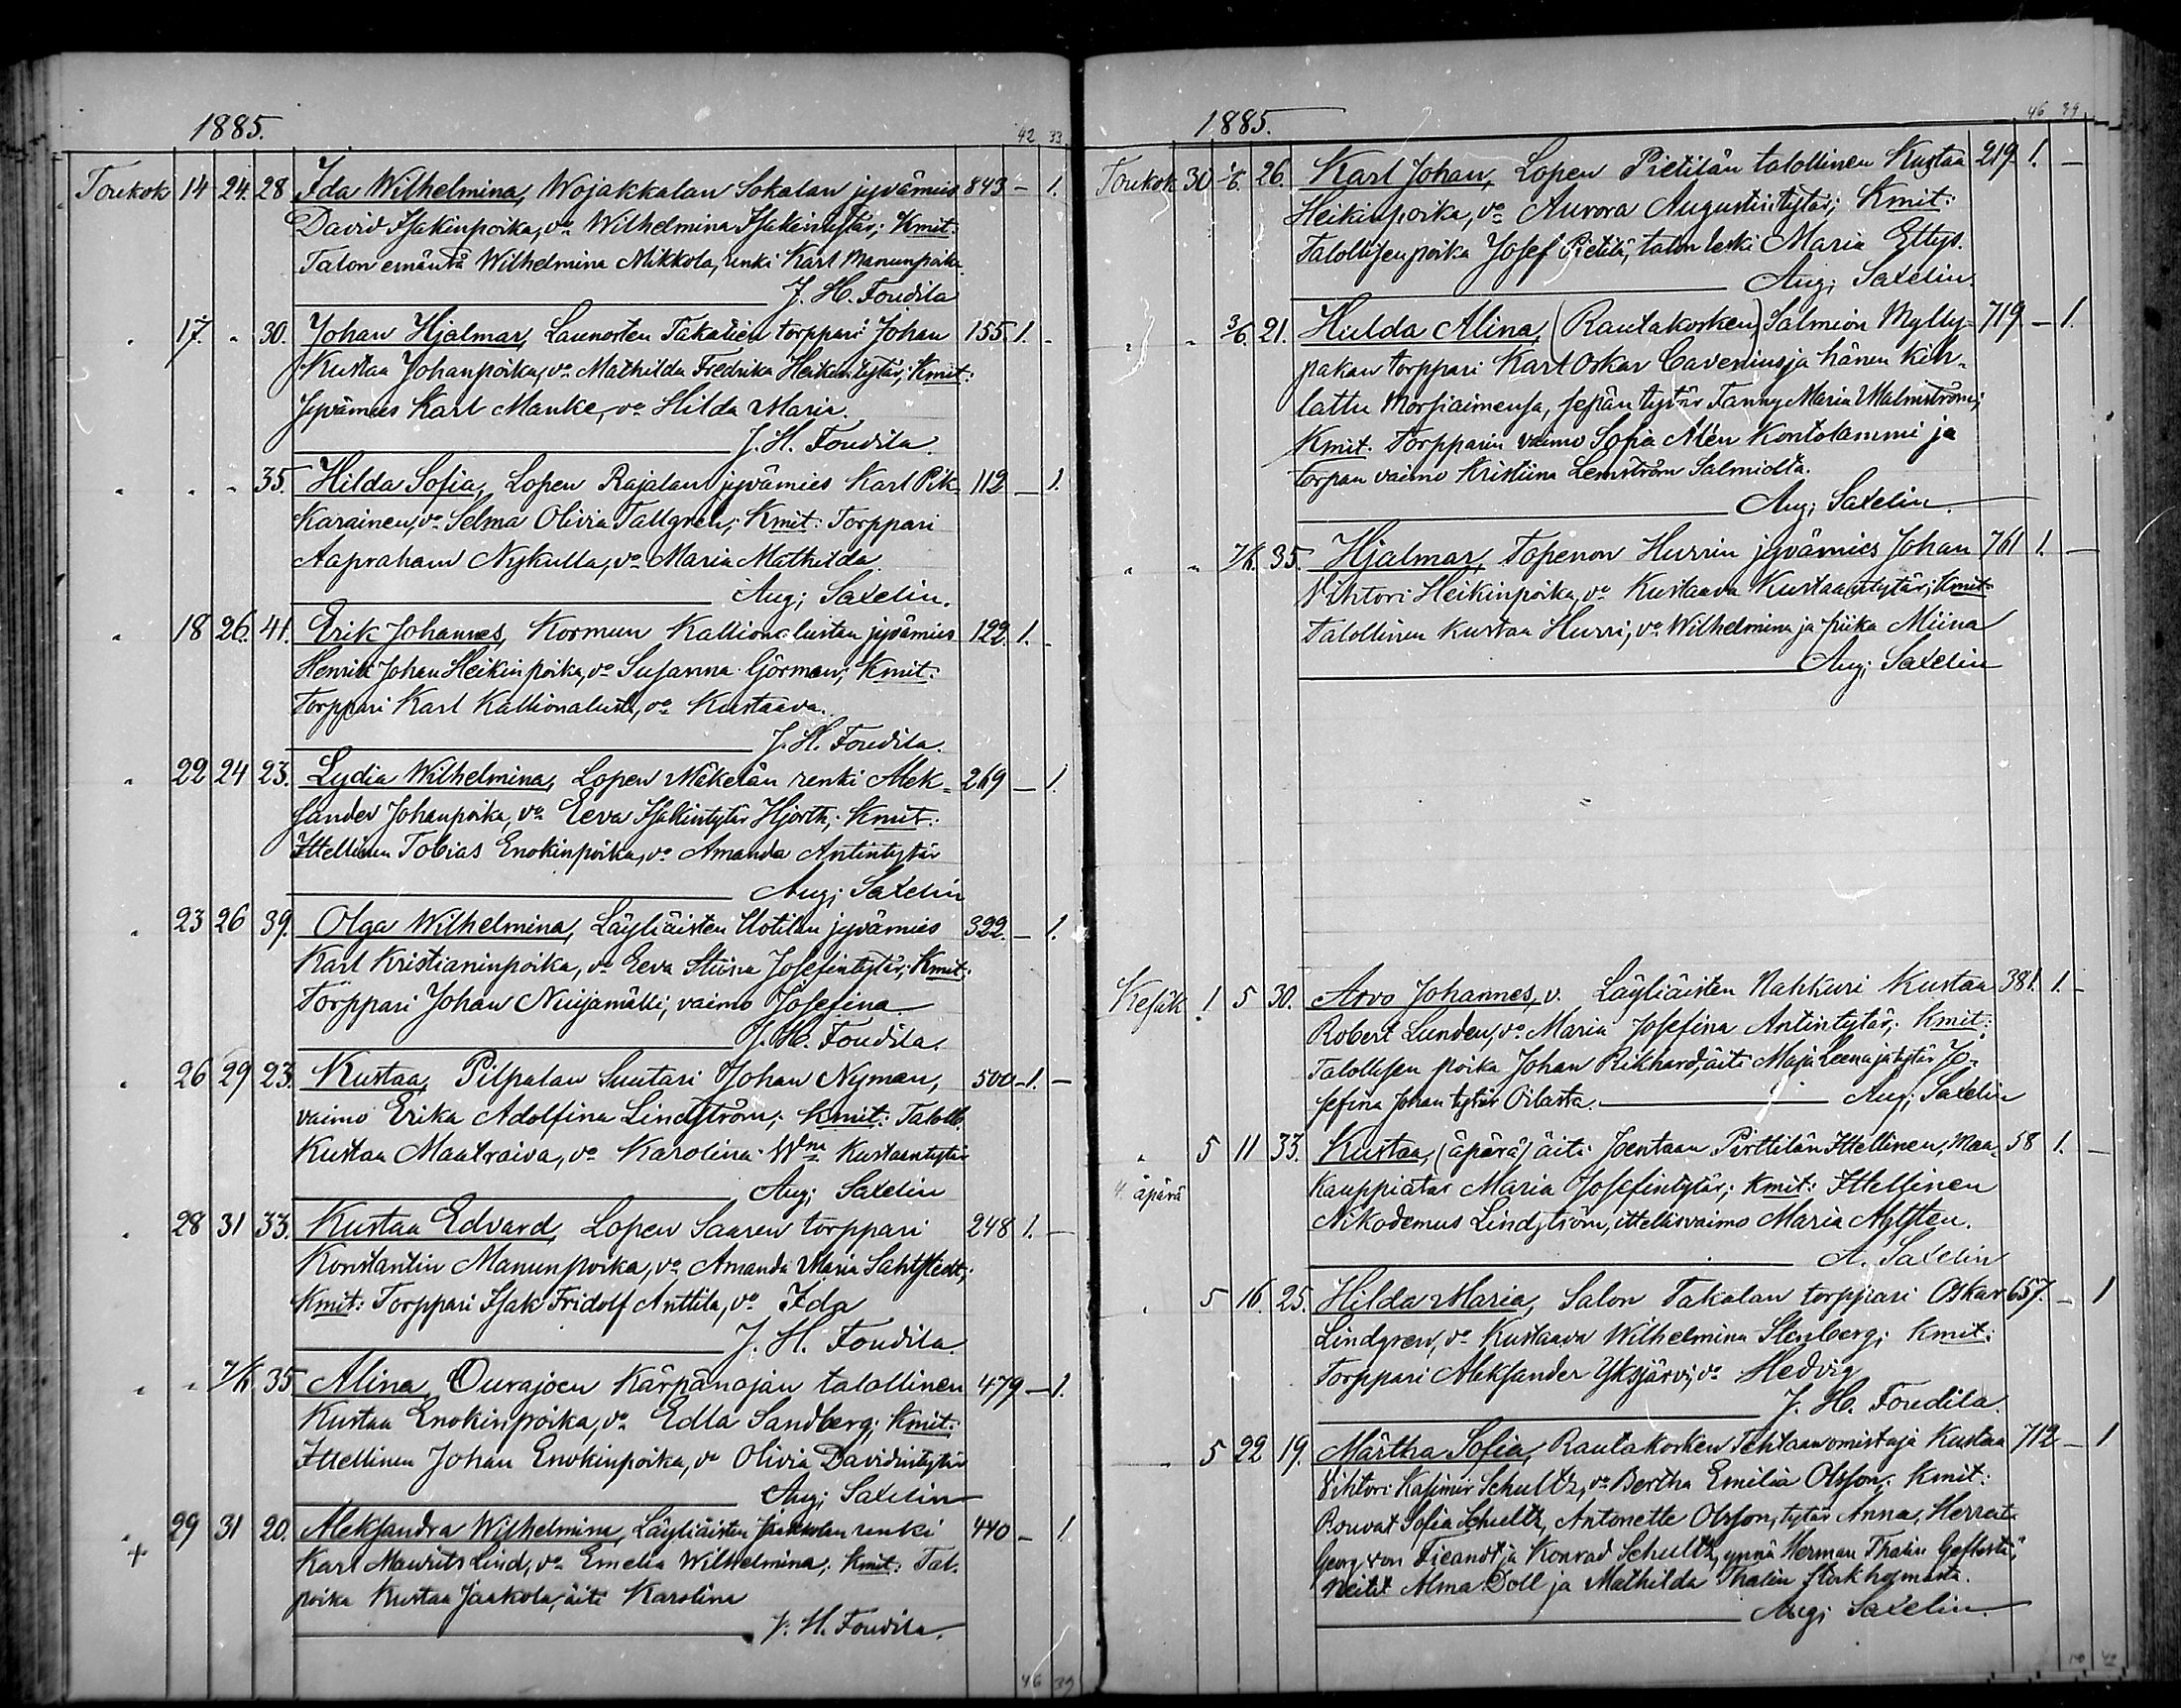 1885.
42 33
Toukok 14 24. 28 Ida Wilhelmina, Wojakkalan Sokalan jyvämies 843 - 1.
David Isakinpoika, vo Wilhelmina Isakintytär; Kmit:
Talon emäntä Wilhelmina Mikkola, renki Karl Manunpoika.
J. H. Foudila
" 17. " 30. Johan Hjalmar, Launosten Takalien torppari Johan 155. 1. -
Kustaa Johanpoika, vo Mathilda Fredrika Heikintytär; Kmit:
Jyvämies Karl Manke, vo Hilda Maria.
J. H. Foudila.
" " " 35. Hilda Sofia, Lopen Rajalan jyvämies Karl Pik- 112 - 1.
Karainen, vo Selma Olivia Tallgren; Kmit: Torppari
Aapraham Nykulla, vo Maria Mathilda.
Aug; Saxelin.
" 18 26. 41. Erik Johannes, Kormun Kallionalustan jyvämies 122. 1. -
Henrik Johan Heikinpoika, vo Susanna Görman; Kmit:
Torppari Karl Kallionalusta, vo Kustaava.
J. H. Foudila.
" 22 24 23. Lydia Wilhelmina, Lopen Mäkelän renki Alek- 269 - 1.
sander Johanpoika, vo Eeva Isakintytär Hjorth; Kmit:
Ittellinen Tobias Enokinpoika, vo Amanda Antintytär
Aug; Saxelin
" 23 26 39. Olga Wilhelmina, Läyliäisten Uotilan jyvämies 322. - 1.
Karl Kristianinpoika, vo Eeva Stiina Josefintytär; Kmit:
Torppari Johan Nuijamälli, vaimo Josefina.
J. H. Foudila.
" 26 29 23. Kustaa, Pilpalan Suutari Johan Nyman, 500 - 1. -
vaimo Erika Adolfina Lindström; Kmit: Taloll.
Kustaa Maatraiva, vo Karolina Wna Kustaantytär
Aug; Saxelin
" 28 31 33. Kustaa Edvard, Lopen Saaren torppari 248 1. -
Konstantin Manunpoika, vo Amanda Maria Sahlstedt;
Kmit: Torppari Isak Fridolf Anttila, vo Ida
J. H. Foudila.
" " 7/6. 35 Alina, Ourajoen Kärpänojan talollinen 479 - 1.
Kustaa Enokinpoika, vo Edla Sandberg; Kmit:
Ittellinen Johan Enokinpoika, vo Olivia Davidintytär
Aug; Saxelin
" + 29 31 20. Aleksandra Wilhelmina, Läyliäisten Jaakolan renki 440 - 1
Karl Maurits Lind, vo Emelia Wilhelmina; Kmit: Tal.
poika Kustaa Jaakola, äiti Karolina
J. H. Foudila.
46 39
1885.
46 39
Toukok 30 /6. 26. Karl Johan, Lopen Pietilän talollinen Kustaa 219. 1. -
Heikinpoika, vo Aurora Augustintytär; Kmit:
Talollisenpoika Josef Pietilä, talon leski Maria Ettys.
Aug; Saxelin.
" " 3/6. 21. Hulda Alina, (Rautakosken) Salmion Mylly- 719 - 1.
pakan torppari Karl Oskar Cavenius ja hänen kih-
lattu Morsiaimensa, sepän tytär Fanny Maria Malmström;
Kmit. Torpparin vaimo Sofia Alén Kontolammi ja
torpan vaimo Kristiina Lemström Salmiolta.
Aug; Saxelin.
" " 7/6. 35. Hjalmar, Topenon Hurrin jyvämies Johan 761 1. -
Vihtori Heikinpoika, vo Kustaava Kustaantytär; Kmit:
Talollinen Kustaa Hurri, vo Wilhelmina ja piika Miina
Aug; Saxelin
Kesäk. 1 5 30. Arvo Johannes, v. Läyliäisten Nahkuri Kustaa 381. 1. -
Robert Lunden, vo Maria Josefina Antintytär; Kmit:
Talollisen poika Johan Rikhard, äiti Maja Leena ja tytär Jo-
sefina Johan tytär Oilasta. Aug; Saxelin
" 5 11 33. Kustaa, (äpärä) äiti Joentaan Pirttilän Ittellinen, Maa- 58 1. -
4. äpärä
kauppiatar Maria Josefintytär; Kmit: Ittellinen
Nikodemus Lindström, ittellisvaimo Maria
A. Saxelin
" 5 16. 25. Hilda Maria, Salon Takalan torppari Oskar 657. - 1
Lindgren, vo Kustaava Wilhelmina Stenberg; Kmit:
Torppari Aleksander Yksjärvi, vo Hedvig
J. H. Foudila.
" 5 22 19. Märtha Sofia, Rautakosken Tehtaanomistaja Kustaa 712 - 1
Vihtori Kasimir Schultz, vo Bertha Emilia Olsson; Kmit:
Rouvat Sofia Schultz, Antonette Olsson, tytär Anna, Herrat
Georg von Ficandt ja Konrad Schultz, ynnä Herman Thalin Geflestä,
Neitit Alma Doll ja Mathilda Thalin Stockholmasta.
Aug; Saxelin.